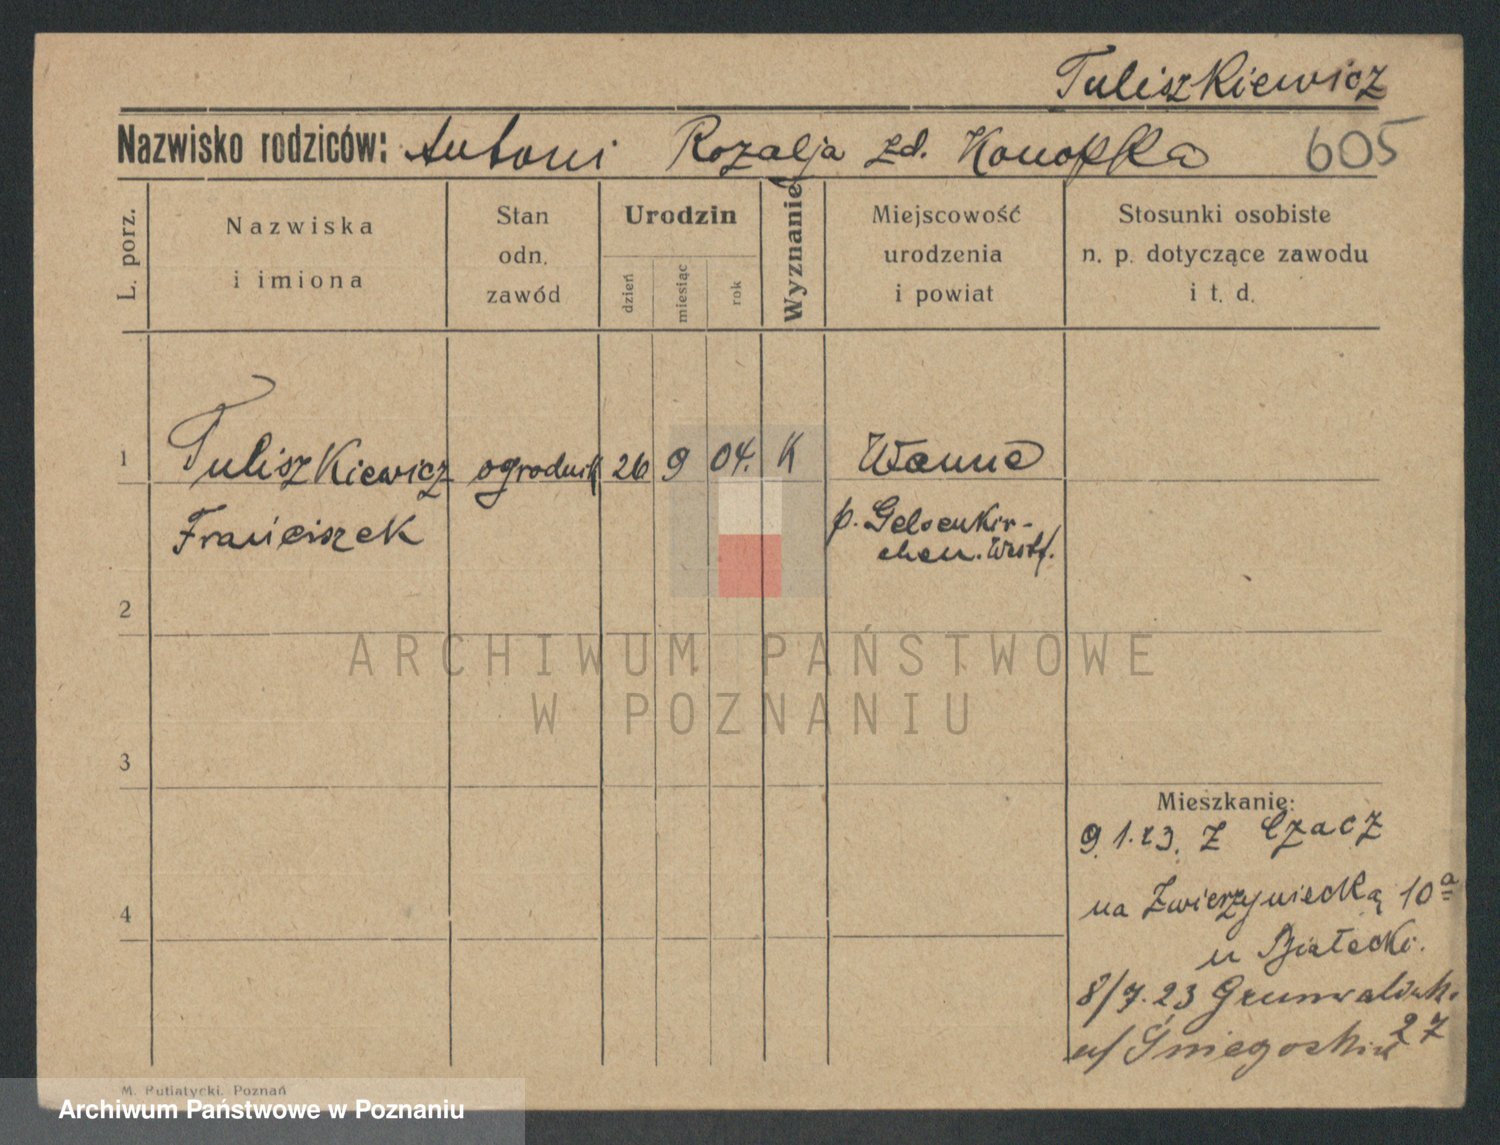 Tuliszkiewicz
Nazwisko rodziców: Antoni Rozalja zd. Konopka 605
L. porz.
Nazwiska
i imiona
Stan
odn.
zawód
Urodzin
dzień
miesiąc
rok
Wyznanie
Miejscowość
urodzenia
i powiat
Stosunki osobiste
n. p. dotyczące zawodu
i t. d.
1 Tuliszkiewicz ogrodnik 26 9 04. K Wanne
Franciszek p. Gelsenkir-
chen. Westf.
2
ARCHIWUM PAŃSTWOWE
W POZNANIU
3
Mieszkanie:
9.1.23. z Czacz
4 na Zwierzyniecką 10a
u Białecki.
8/7.23 Grunwaldzk.
27
u/ Śniegockiu
M. Putiatycki, Poznań
Archiwum Państwowe w Poznaniu